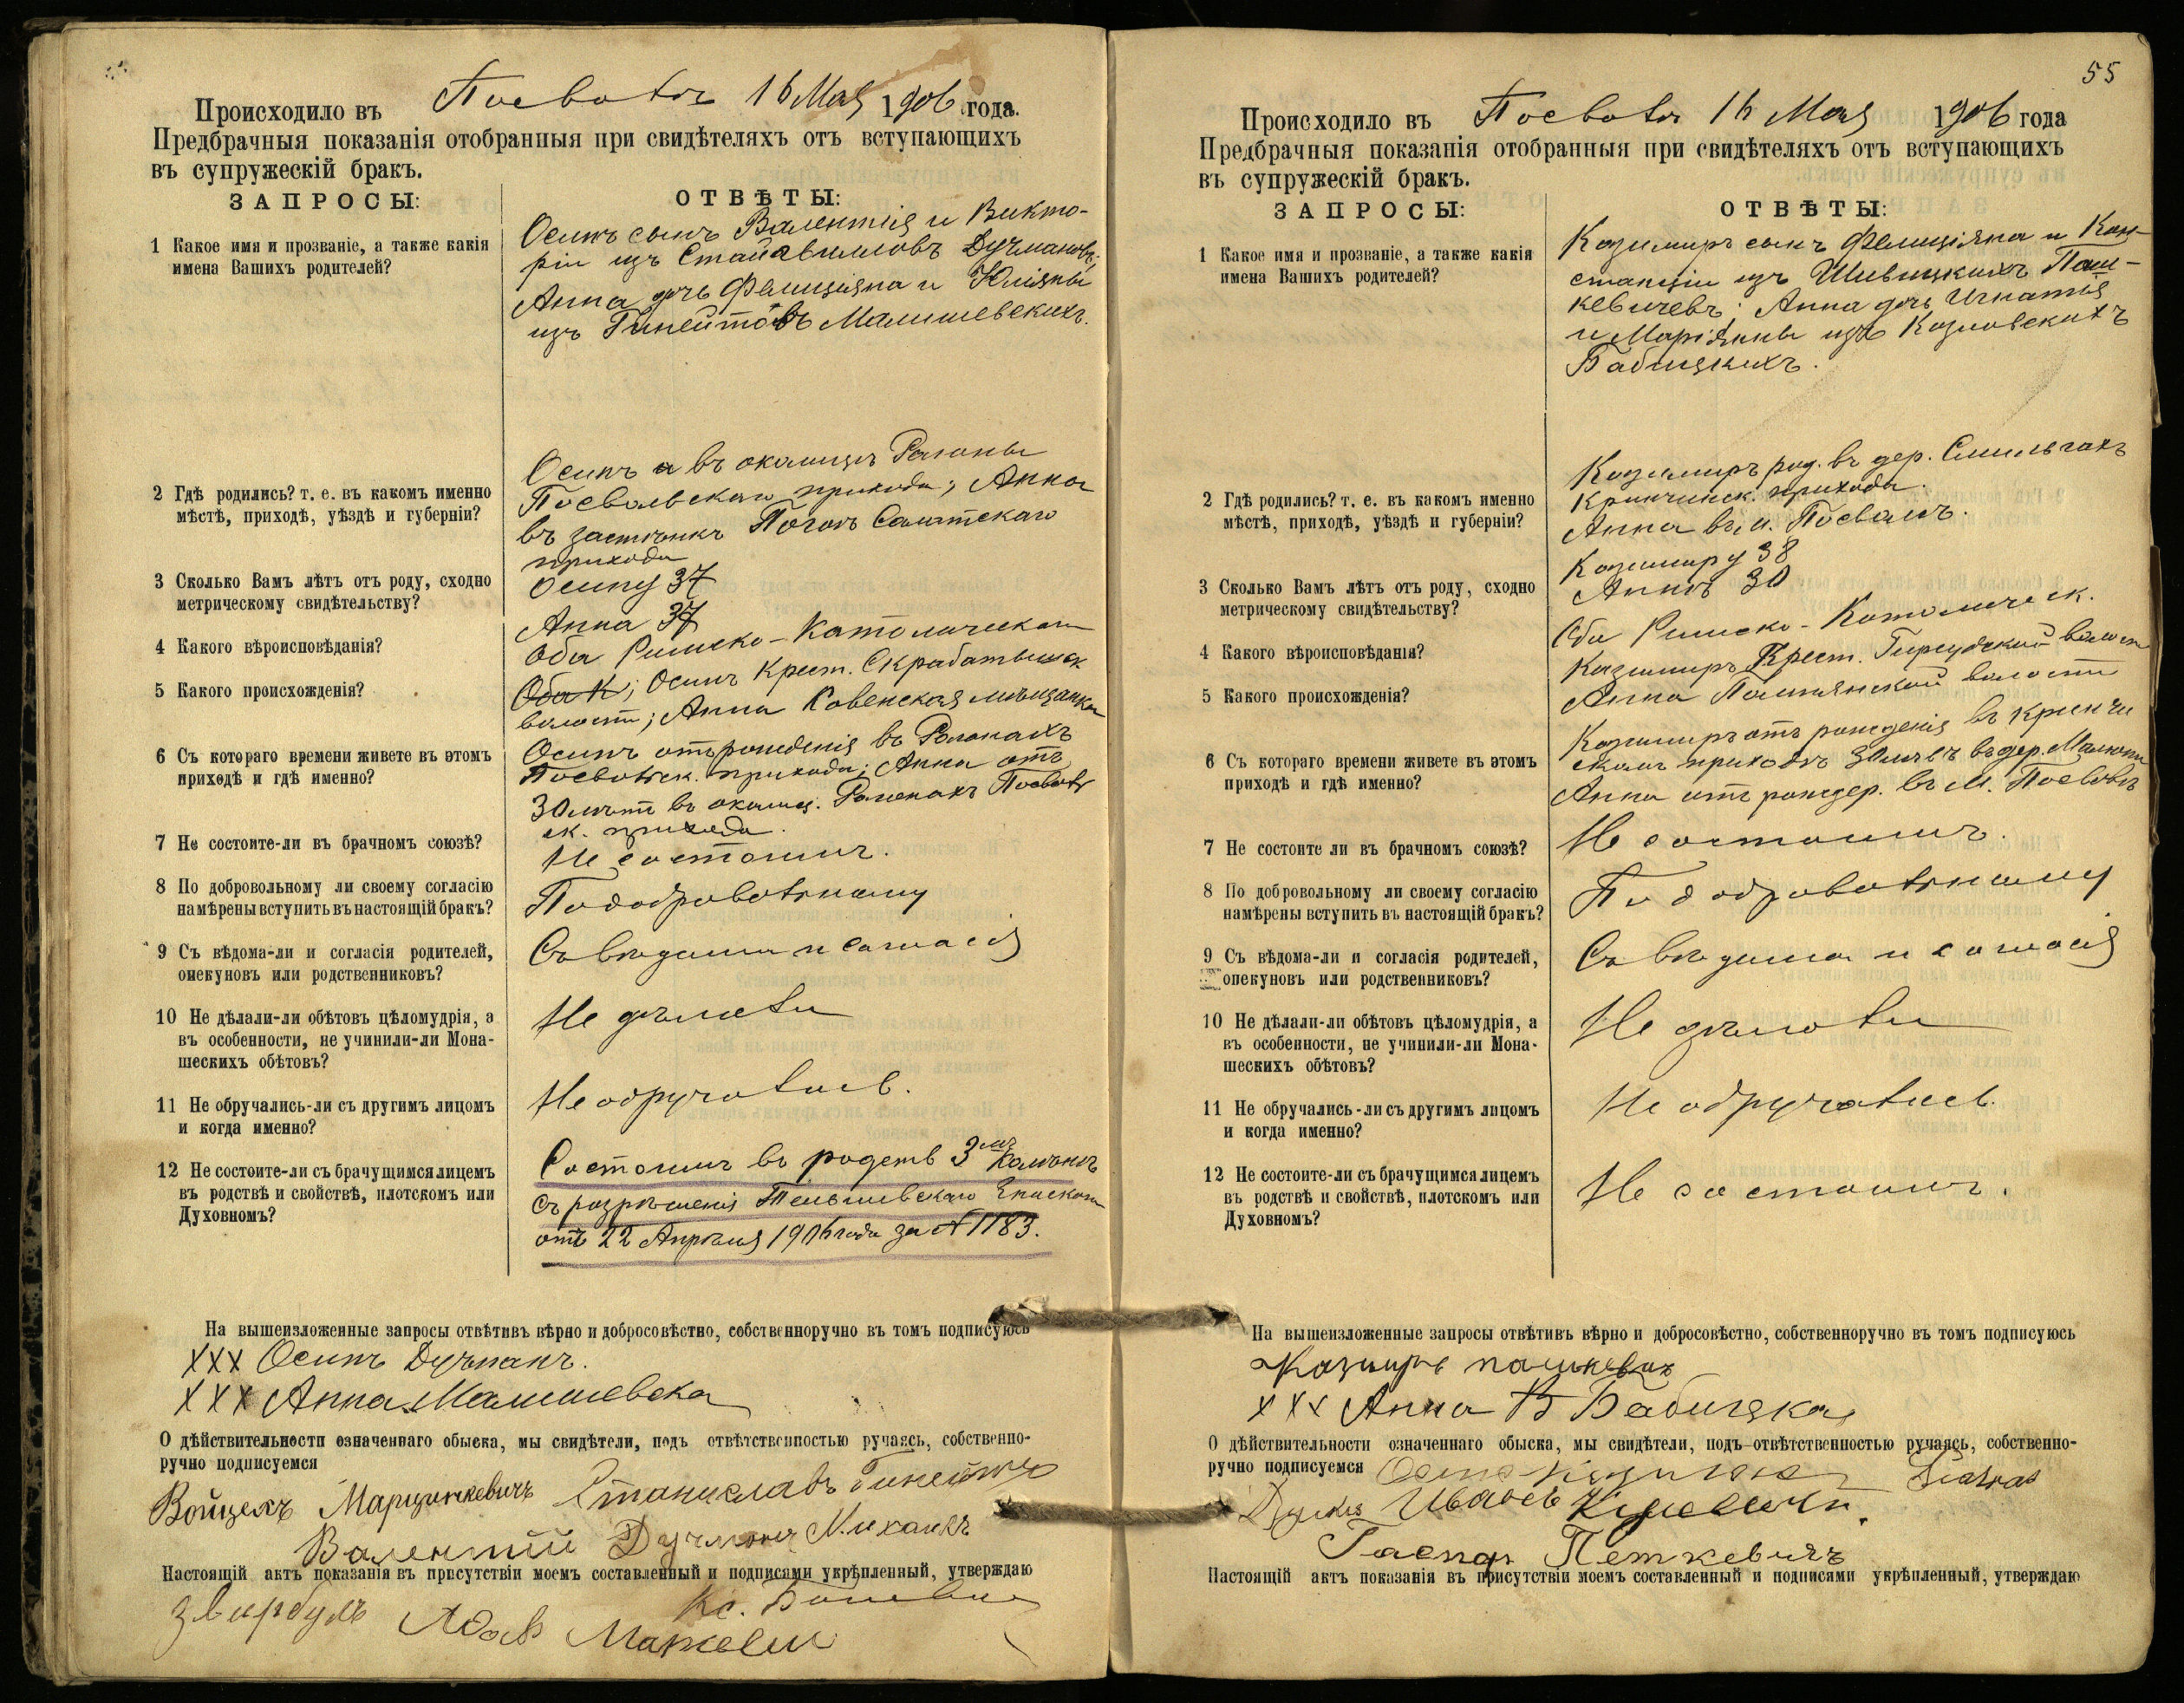 Происходило въ Посволѣ 16 Мая 1906 года.
Предбрачныя показанія отобранныя при свидѣтеляхъ отъ вступающихъ
въ супружескій бракъ.
ЗАПРОСЫ:
ОТВѢТЫ:
1 Какое имя и прозваніе, а также какія
имена Вашихъ родителей?
Осипъ сынъ Валентія и Викто-
ріи изъ Дучмановъ;
Анна дочь Фелиціяна и Юліяны
изъ Гинейтовъ Малишевскихъ.
2 Гдѣ родились? т. е. въ какомъ именно
мѣстѣ, приходѣ, уѣздѣ и губерніи?
Осипъ въ околицѣ
Посвольскаго прихода; Анна
въ застѣнкѣ Салатскаго
прихода
3 Сколько Вамъ лѣтъ отъ роду, сходно
метрическому свидѣтельству?
Осипу 37
Анна 37
4 Какого вѣроисповѣданія?
Оба Римско-Католическаго
5 Какого происхожденія?
Оба К; Осипъ крест.
волости; Анна Ковенская мѣщанка
6 Съ котораго времени живете въ этомъ
приходѣ и гдѣ именно?
Осипъ отъ рожденія въ
Посвольск. прихода; Анна отъ
30 лѣтъ въ околиц. Посволь
ск. прихода.
7 Не состоите-ли въ брачномъ союзѣ?
Не состоимъ.
8 По добровольному ли своему согласію
намѣрены вступить въ настоящій бракъ?
По добровольному
9 Съ вѣдома-ли и согласія родителей,
опекуновъ или родственниковъ?
Съ вѣдома и согласія
10 Не дѣлали-ли обѣтовъ цѣломудрія, а
въ особенности, не учинили-ли Мона-
шескихъ обѣтовъ?
Не дѣлали
11 Не обручались-ли съ другимъ лицомъ
и когда именно?
Не обручались.
12 Не состоите-ли съ брачущимся лицемъ
въ родствѣ и свойствѣ, плотскомъ или
Духовномъ?
Состоимъ въ родств 3мъ колѣнѣ
съ разрѣшенія Тельшевскаго Епископа
отъ 22 Апрѣля 1906 года за № 1183.
На вышеизложенные запросы отвѣтивъ вѣрно и добросовѣстно, собственноручно въ томъ подписуюсь
XXX Осипъ Дучманъ.
XXX Анна Малишевска
О дѣйствительности означеннаго обыска, мы свидѣтели, подъ отвѣтственностью ручаясь, собственно-
ручно подписуемся
Войцехъ Марцинкевичъ Станиславъ Гинейтъ
Валентій Дучманъ Михаилъ
Настоящій актъ показанія въ присутствіи моемъ составленный и подписями укрѣпленный, утверждаю
Звирбуль Адам
Кс.
55
Происходило въ Посволѣ 16 Мая 1906 года
Предбрачныя показанія отобранныя при свидѣтеляхъ отъ вступающихъ
въ супружескій бракъ.
ЗАПРОСЫ:
ОТВѢТЫ:
1 Какое имя и прозваніе, а также какія
имена Вашихъ родителей?
Казимиръ сынъ Фелиціяна и Кон-
станціи изъ Шивицкихъ Паш-
кевичевъ; Анна дочь Игнатія
и Маріянны изъ Козловскихъ
Бабицкихъ.
2 Гдѣ родились? т. е. въ какомъ именно
мѣстѣ, приходѣ, уѣздѣ и губерніи?
Казимиръ род. въ дер. Смильгахъ
Кринчинск. прихода.
Анна въ м. Посволѣ.
3 Сколько Вамъ лѣтъ отъ роду, сходно
метрическому свидѣтельству?
Казимиру 38
Аннѣ 30
4 Какого вѣроисповѣданія?
Оба Римско-Католическ.
5 Какого происхожденія?
Казимиръ Крест. волости
Анна волости
6 Съ котораго времени живете въ этомъ
приходѣ и гдѣ именно?
Казимиръ отъ рожденія въ Кринчи
скомъ приходѣ въ дер.
Анна отъ рожден. въ м. Посволѣ
7 Не состоите ли въ брачномъ союзѣ?
Не состоимъ.
8 По добровольному ли своему согласію
намѣрены вступить въ настоящій бракъ?
По добровольному
9 Съ вѣдома-ли и согласія родителей,
опекуновъ или родственниковъ?
Съ вѣдома и согласія
10 Не дѣлали-ли обѣтовъ цѣломудрія, а
въ особенности, не учинили-ли Мона-
шескихъ обѣтовъ?
Не дѣлали
11 Не обручались-ли съ другимъ лицомъ
и когда именно?
Не обручались.
12 Не состоите-ли съ брачущимся лицемъ
въ родствѣ и свойствѣ, плотскомъ или
Духовномъ?
Не состоимъ.
На вышеизложенные запросы отвѣтивъ вѣрно и добросовѣстно, собственноручно въ томъ подписуюсь
Казимиръ пашкевич
XXX Анна Бабицкая
О дѣйствительности означеннаго обыска, мы свидѣтели, подъ отвѣтственностью ручаясь, собственно-
ручно подписуемся
Петкевичъ
Настоящій актъ показанія въ присутствіи моемъ составленный и подписями укрѣпленный, утверждаю